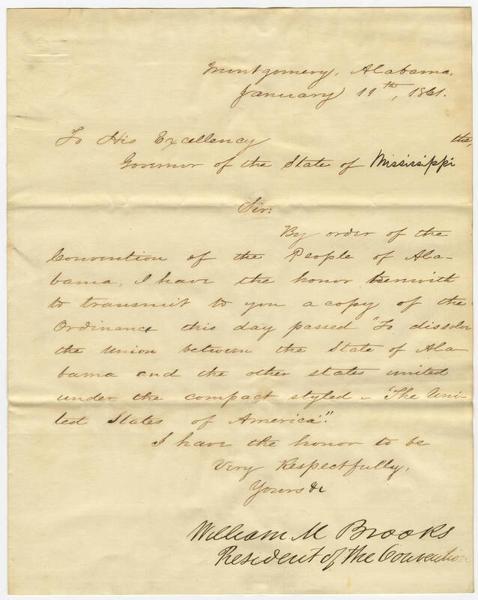 Montgomery, Alabama,
January 11th, 1861.
To His Excellency the,
Governor of the State of Mississippi
Sir:
By order of the
Convention of the People of Ala-
bama, I have the honor herewith
to transmit to you a copy of the
Ordinance this day passed "To dissolve
the union between the State of Ala-
bama and the other states united
under the compact styled - "The Uni-
ted States of America".
I have the honor to be
Very Respectfully,
Yours &c
William M Brooks
President of the Convention